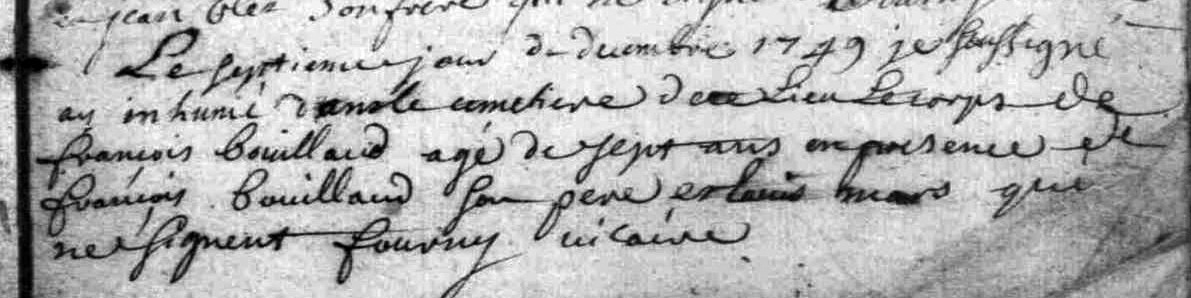 jean son frere qui ne
Le septieme jour de decembre 1749 je soussigné
ay inhumé dans le cimetiere de ce Lieu Le corps de
françois bouillaud agé de sept ans en presence de
françois bouillaud son pere et louis mars qui
ne signent fourny vicaire